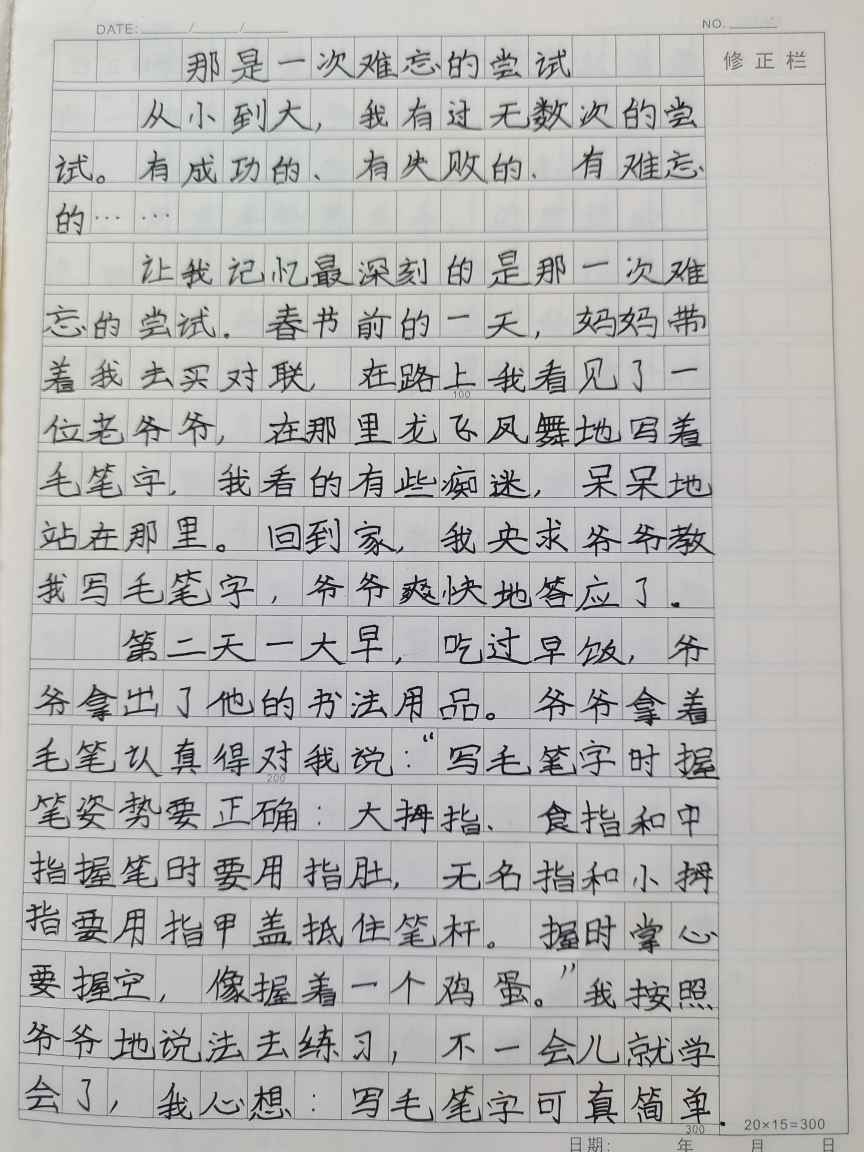 DATE: / /
NO.
修正栏
那是一次难忘的尝试
从小到大，我有过无数次的尝
试。有成功的、有失败的、有难忘
的……
让我记忆最深刻的是那一次难
忘的尝试．春节前的一天，妈妈带
着我去买对联，在路上我看见了一
100
位老爷爷，在那里龙飞凤舞地写着
毛笔字，我看的有些痴迷，呆呆地
站在那里。回到家，我央求爷爷教
我写毛笔字，爷爷爽快地答应了．
第二天一大早，吃过早饭，爷
爷拿出了他的书法用品。爷爷拿着
毛笔认真得对我说：“写毛笔字时握
200
笔姿势要正确：大拇指、食指和中
指握笔时要用指肚，无名指和小拇
指要用指甲盖抵住笔杆。握时掌心
要握空，像握着一个鸡蛋。”我按照
爷爷地说法去练习，不一会儿就学
会了，我心想：写毛笔字可真简单．
300
20×15=300
日期： 年 月 日